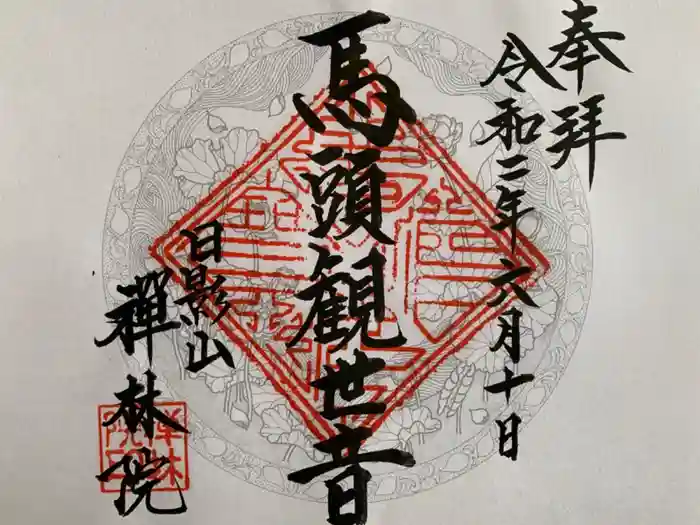 奉拝
令和二年六月十日
馬頭観世音
日影山
禅林院